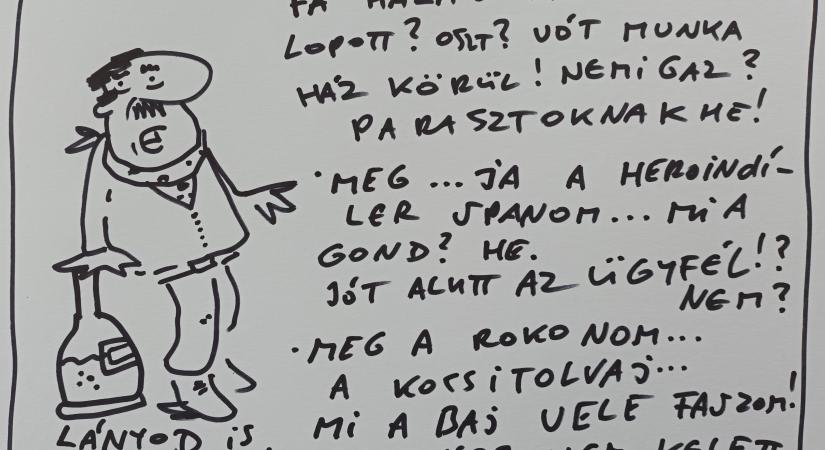 FA HAZA
LOPOTT? OSZT? VÓT MUNKA
HÁZ KÖRÜL! NEM IGAZ?
PARASZTOKNAK HE!
• MEG ... JA A HEROINDÍ-
LER SPANOM... MI A
GOND? HE.
JÓT ALUTT AZ ÜGYFÉL!?
NEM?
• MEG A ROKONOM...
A KOCSITOLVAJ...
MI A BAJ VELE FASZOM!
KELETT
LÁNYOD IS